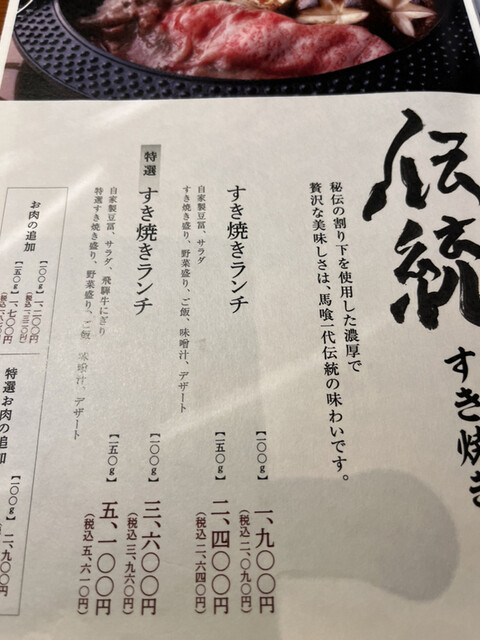 伝統
すき焼き
秘伝の割り下を使用した濃厚で
贅沢な美味しさは、馬喰一代伝統の味わいです。
すき焼きランチ
自家製豆冨、サラダ
すき焼き盛り、野菜盛り、ご飯、味噌汁、デザート
【一〇〇g】一、九〇〇円
(税込二、〇九〇円)
【一五〇g】二、四〇〇円
(税込二、六四〇円)
特選 すき焼きランチ
自家製豆冨、サラダ、飛騨牛にぎり
特選すき焼き盛り、野菜盛り、ご飯、味噌汁、デザート
【一〇〇g】三、六〇〇円
(税込三、九六〇円)
【一五〇g】五、一〇〇円
(税込五、六一〇円)
お肉の追加
【一〇〇g】一、二〇〇円
(税込一、三二〇円)
【一五〇g】一、七〇〇円
特選お肉の追加
【一〇〇g】二、九〇〇円